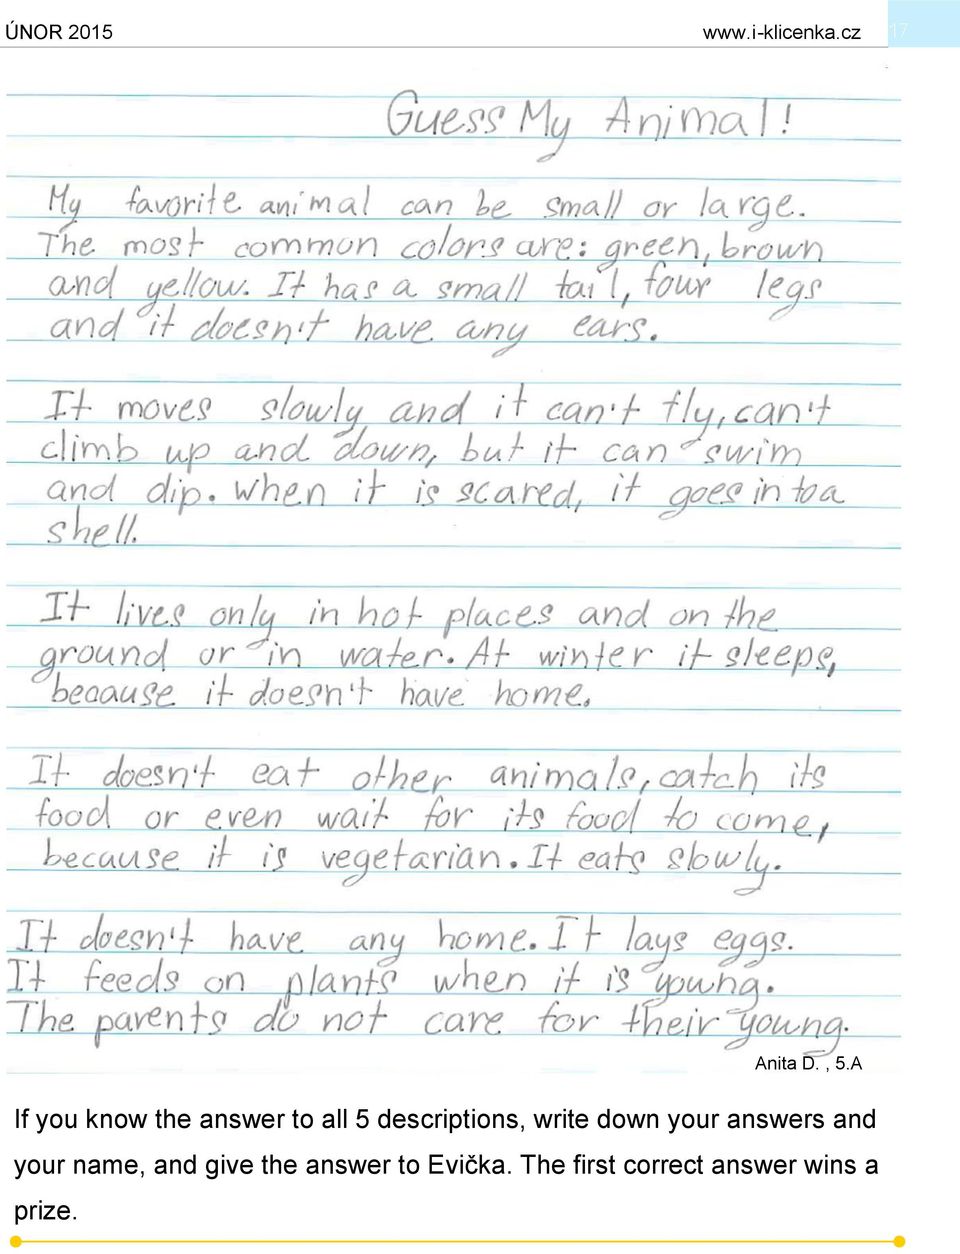 ÚNOR 2015 www.i-klicenka.cz 17
Guess My Animal!
My favorite animal can be small or large.
The most common colors are: green, brown
and yellow. It has a small tail, four legs
and it doesn't have any ears.
It moves slowly and it can't fly, can't
climb up and down, but it can swim
and dip. When it is scared, it goes in to a
shell.
It lives only in hot places and on the
ground or in water. At winter it sleeps,
beaause it doesn't have home.
It doesn't eat other animals, catch its
food or even wait for its food to come,
because it is vegetarian. It eats slowly.
It doesn't have any home. It lays eggs.
It feeds on plants when it is young.
The parents do not care for their young.
Anita D. , 5.A
If you know the answer to all 5 descriptions, write down your answers and
your name, and give the answer to Evička. The first correct answer wins a
prize.